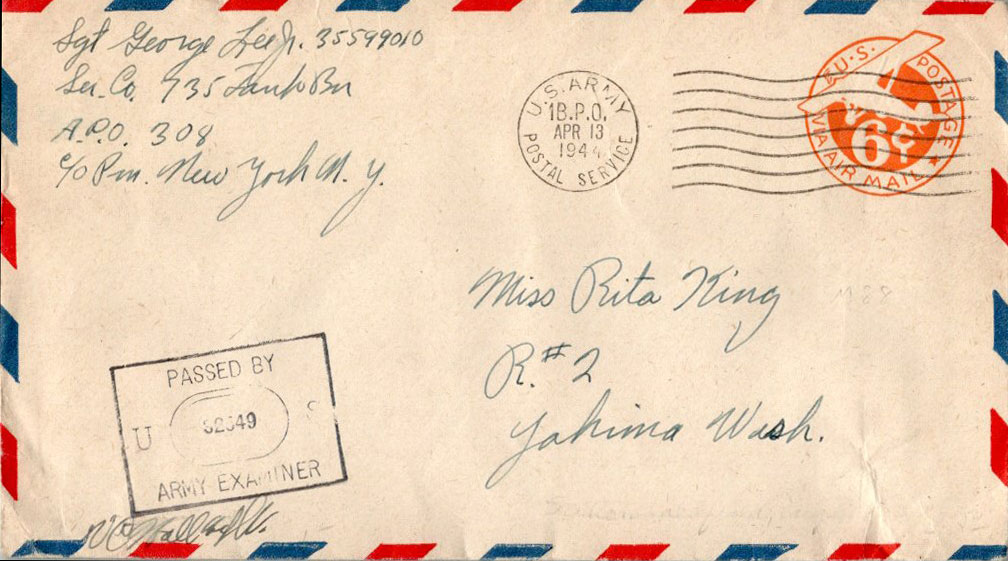 Sgt George Lee Jr. 35599010
Ser. Co. 735 Tank Bn
A.P.O. 308
c/o Pm. New York N.Y.
U.S. ARMY
1B.P.O.
APR 13
1944
POSTAL SERVICE
U.S. POSTAGE
6¢
VIA AIR MAIL
Miss Rita King
R. #2
Yakima Wash.
PASSED BY
U S
ARMY EXAMINER